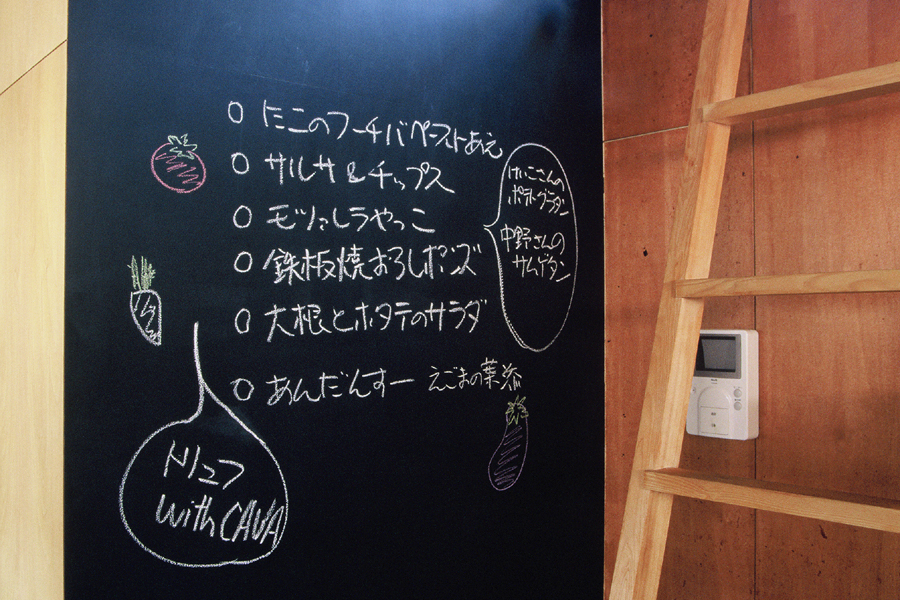 ○ たこのフーチバペーストあえ
○ サルサ&チップス
○ モッツァレラやっこ
○ 鉄板焼おろしポンズ
○ 大根とホタテのサラダ
○ あんだんすー えごまの葉添
けいこさんの
ポテトグラタン
中野さんの
サムゲタン
トリュフ
with CAVA